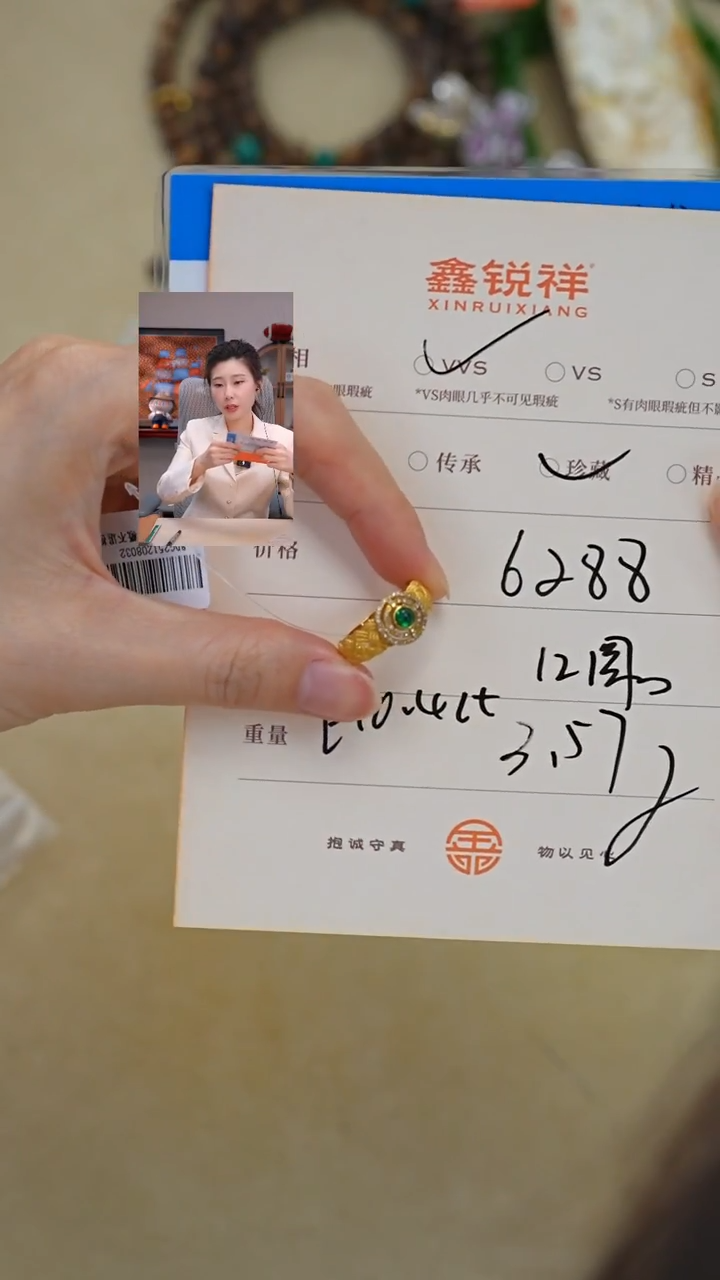 鑫锐祥
XINRUIXIANG
相 VVS VS S
眼瑕疵 *VS肉眼几乎不可见瑕疵 *S有肉眼瑕疵但不
传承 珍藏 精
价格 6288
12圈
重量 0.41ct 3.57g
抱诚守真 物以见